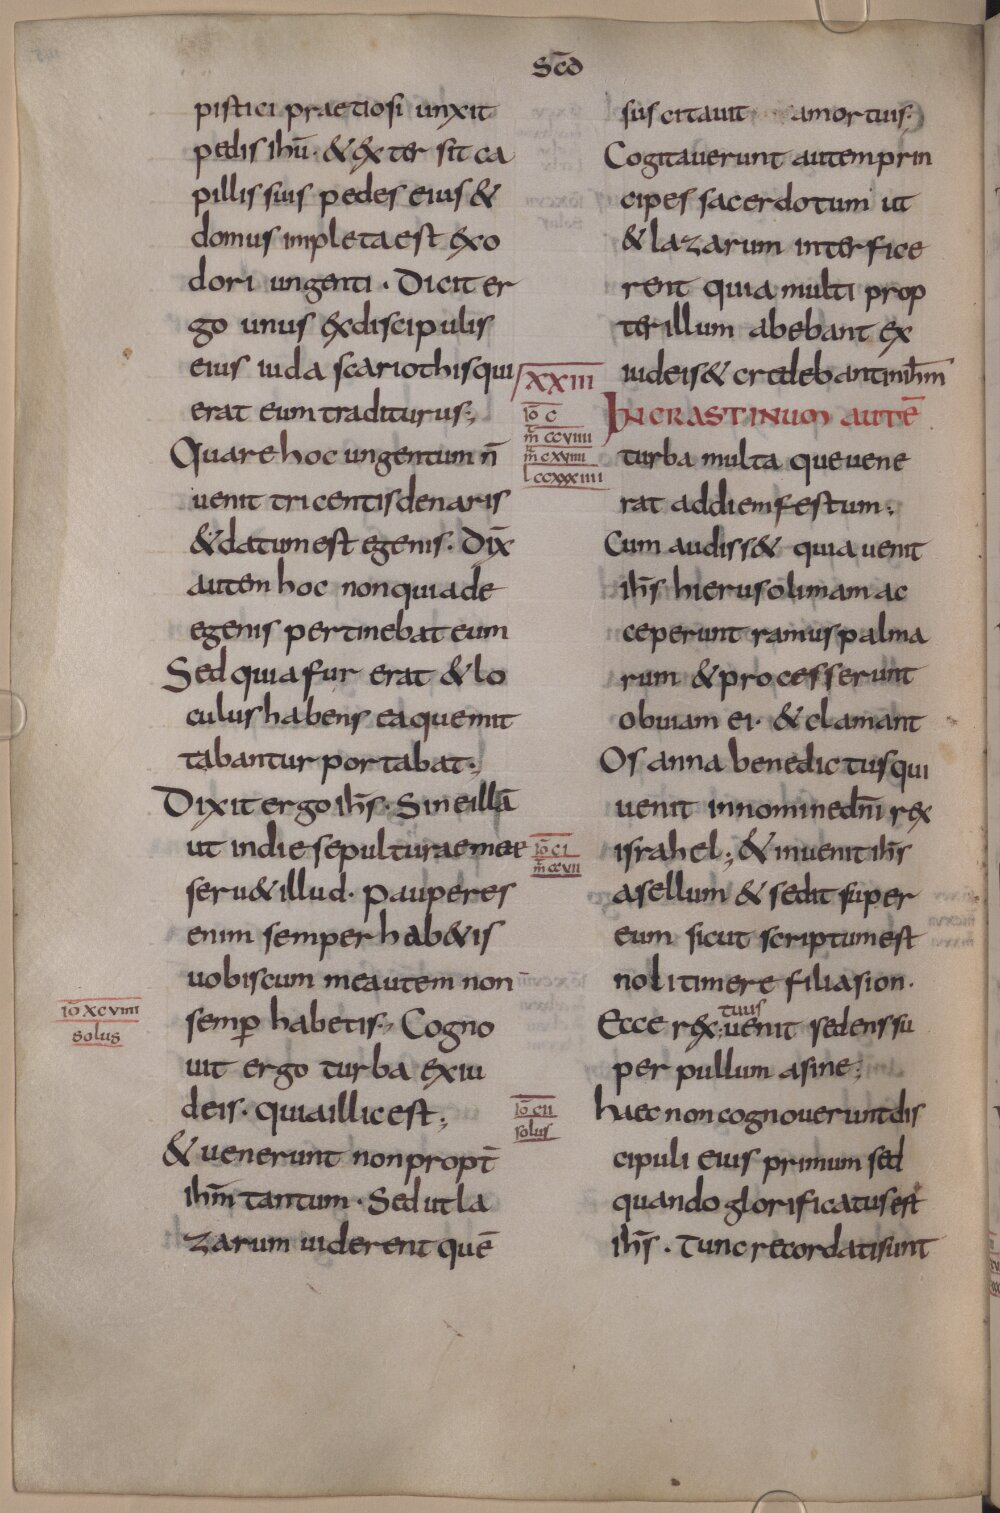 Sc̄d
pistici praetiosi unxit
pedis ihū· & exter sit ca
pillis suis pedes eius &
domus impleta est exo
dori ungenti · Dicit er
go unus ex discipulis
eius iuda scariothis qui
erat eum traditurus;
Quare hoc ungentum n̄
uenit tricentis denaris
& datum est egenis · Dix̄
autem hoc non quia de
egenis pertinebat eum
Sed quia fur erat & lo
culus habens ea que mit
tabantur portabat ;
Dixit ergo ih̄s · Sine illā
ut in die sepulturae meae
seru& illud · Pauperes
enim semper hab&is
uobiscum me autem non
iō xcviiii
solus
semp̄ habetis ; Cogno
uit ergo turba exiu
deis · quia illic est ;
& uenerunt non propt̄
ihm̄ tantum · Sed ut la
zarum uiderent quē
suscitauit a mortuis ;
Cogitauerunt autem prin
cipes sacerdotum ut
& lazarum interfice
rent quia multi prop
ter illum abebant ex
iudeis & credebant in ihm̄
xxiii
iō c
m̄ ccviiii
m̄ cxviiii
l ccxxxiiii
IN CRASTINUM AUTĒ
turba multa que uene
rat ad diem festum ;
Cum audiss& quia uenit
ih̄s hierusolimam ac
ceperunt ramus palma
rum & processerunt
obuiam ei · & clamant
Osanna benedictus qui
uenit in nomine dn̄i rex
iō ci
m̄ ccvii
israhel ; & inuenit ih̄s
asellum & sedit super
eum sicut scriptum est
noli timere filia sion ·
Ecce rex tuus uenit sedens su
per pullum asine ;
iō cii
solus
haec non cognouerunt dis
cipuli eius primum sed
quando glorificatus est
ih̄s · Tunc recordati sunt